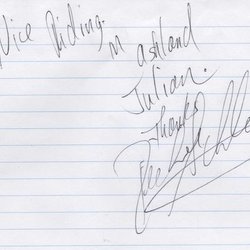 Nice Riding.
in Ashland
Julian.
Thanks